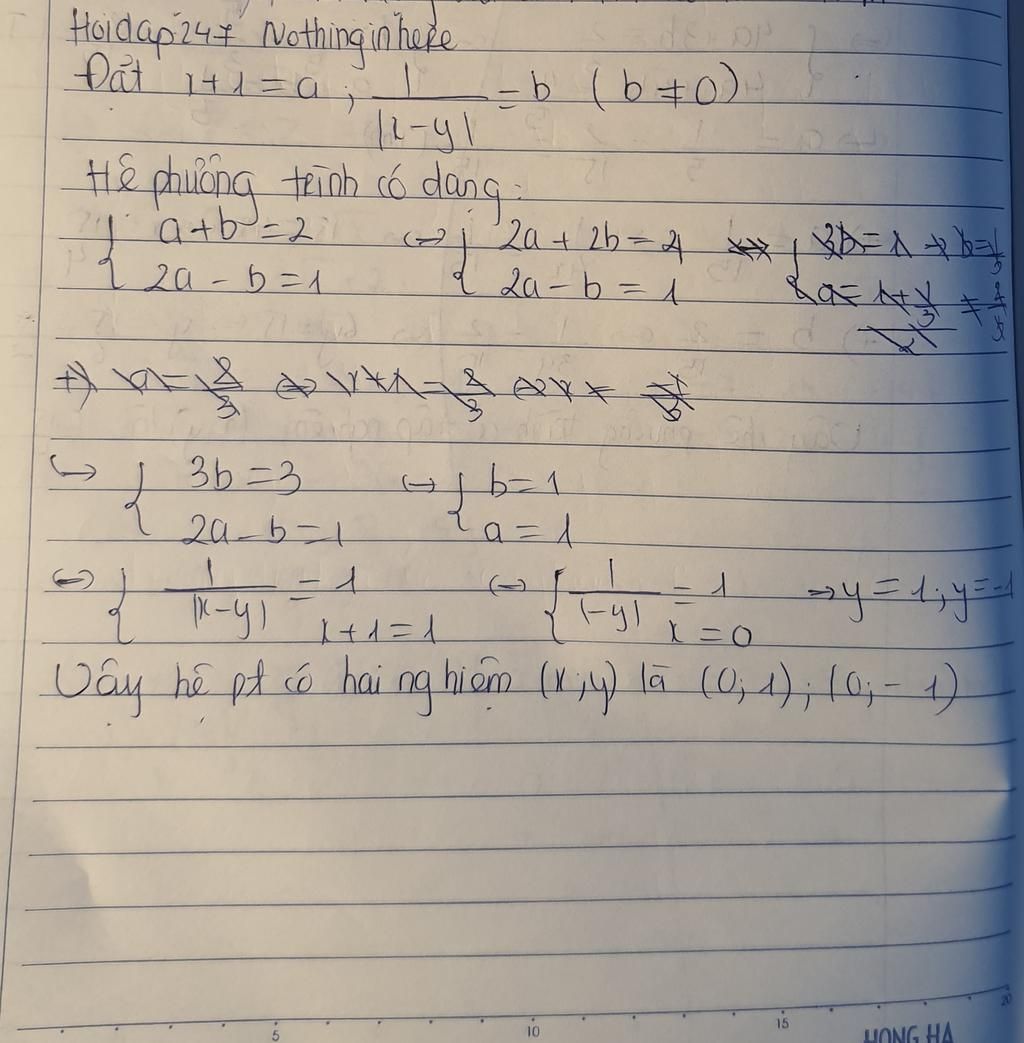 Hoidap247 Nothinginhere
Đặt x+1=a ; 1/|x-y| = b (b≠0)
Hệ phương trình có dạng:
{ a+b=2 ↔ { 2a+2b=4
{ 2a-b=1 { 2a-b=1
↔ { 3b=3 ↔ { b=1
{ 2a-b=1 { a=1
↔ { 1/|x-y| = 1 ↔ { 1/|-y| = 1 ⇒ y=1; y=-1
{ x+1=1 { x=0
Vậy hệ pt có hai nghiệm (x;y) là (0;1); (0;-1)
5 10 15 20
HONG HA